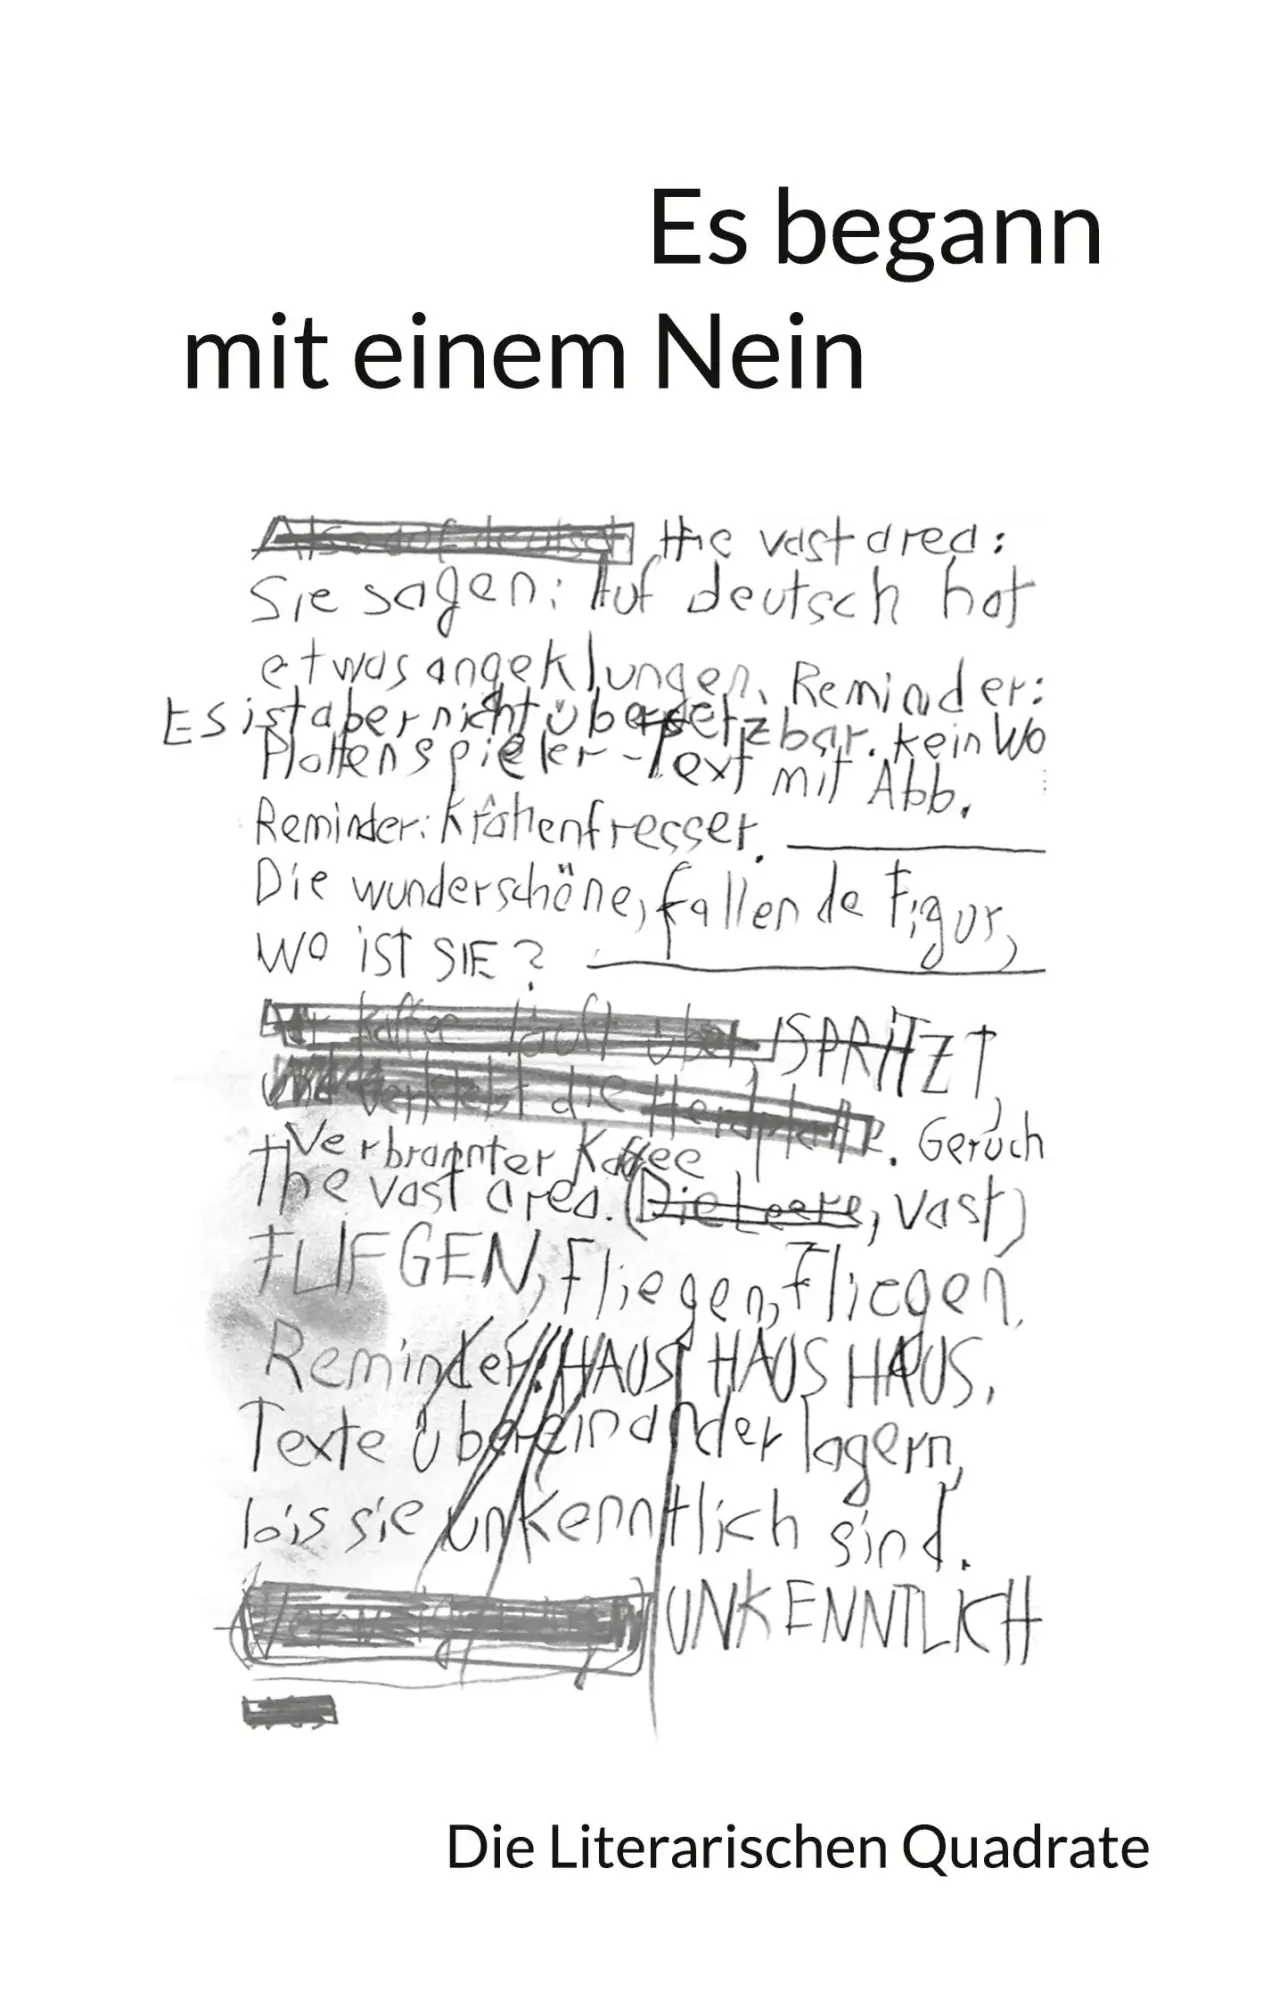 Es begann
mit einem Nein
Also auf deutsch the vast area:
Sie sagen: Auf deutsch hat
etwas angeklungen. Reminder:
Es ist aber nicht übersetzbar. kein Wo
Plattenspieler-Text mit Abb.
Reminder: Krähenfresser.
Die wunderschöne, fallende Figur,
WO iST SIE?
Kaffee läuft über, SPRiTZT
und verklebt die Herdplatte. Geruch
Verbrannter Kaffee
the vast area. (Die Leere, vast)
FLIEGEN, Fliegen, Fliegen,
Reminder: HAUS HAUS HAUS.
Texte übereinander lagern,
bis sie unkenntlich sind.
UNKENNTLICH
Die Literarischen Quadrate